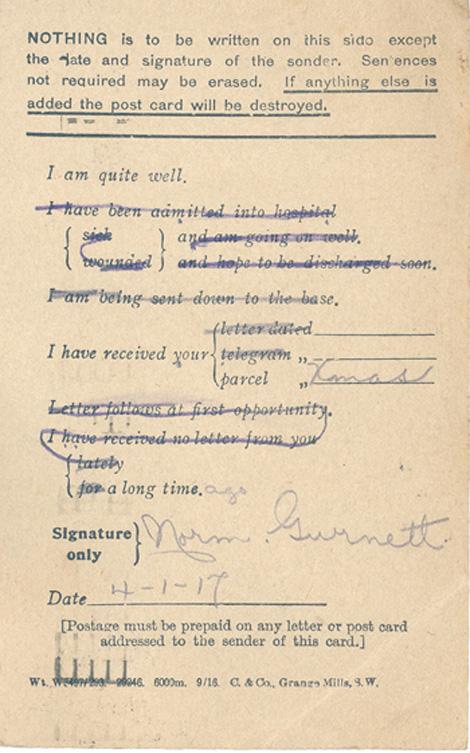 NOTHING is to be written on this side except
the date and signature of the sender. Sentences
not required may be erased. If anything else is
added the post card will be destroyed.
I am quite well.
I have been admitted into hospital
{ sick } and am going on well.
{ wounded } and hope to be discharged soon.
I am being sent down to the base.
letter dated
I have received your { telegram „
parcel „ Xmas
Letter follows at first opportunity.
I have received no letter from you
{ lately
{ for a long time. ago
Signature only } Norm. Gurnett.
Date 4-1-17
[Postage must be prepaid on any letter or post card
addressed to the sender of this card.]
6000m. 9/16. C. & Co., Grange Mills, S.W.